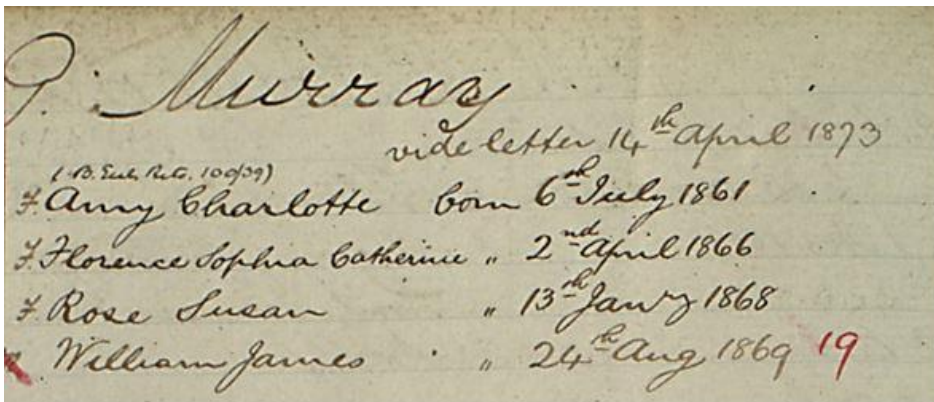 G. Murray
vide letter 14th April 1873
(B. Sub. Rets. 100/39)
F. Amy Charlotte born 6th July 1861
F. Florence Sophia Catherine " 2nd April 1866
F. Rose Susan " 13th Jany 1868
William James " 24th Aug 1869 19